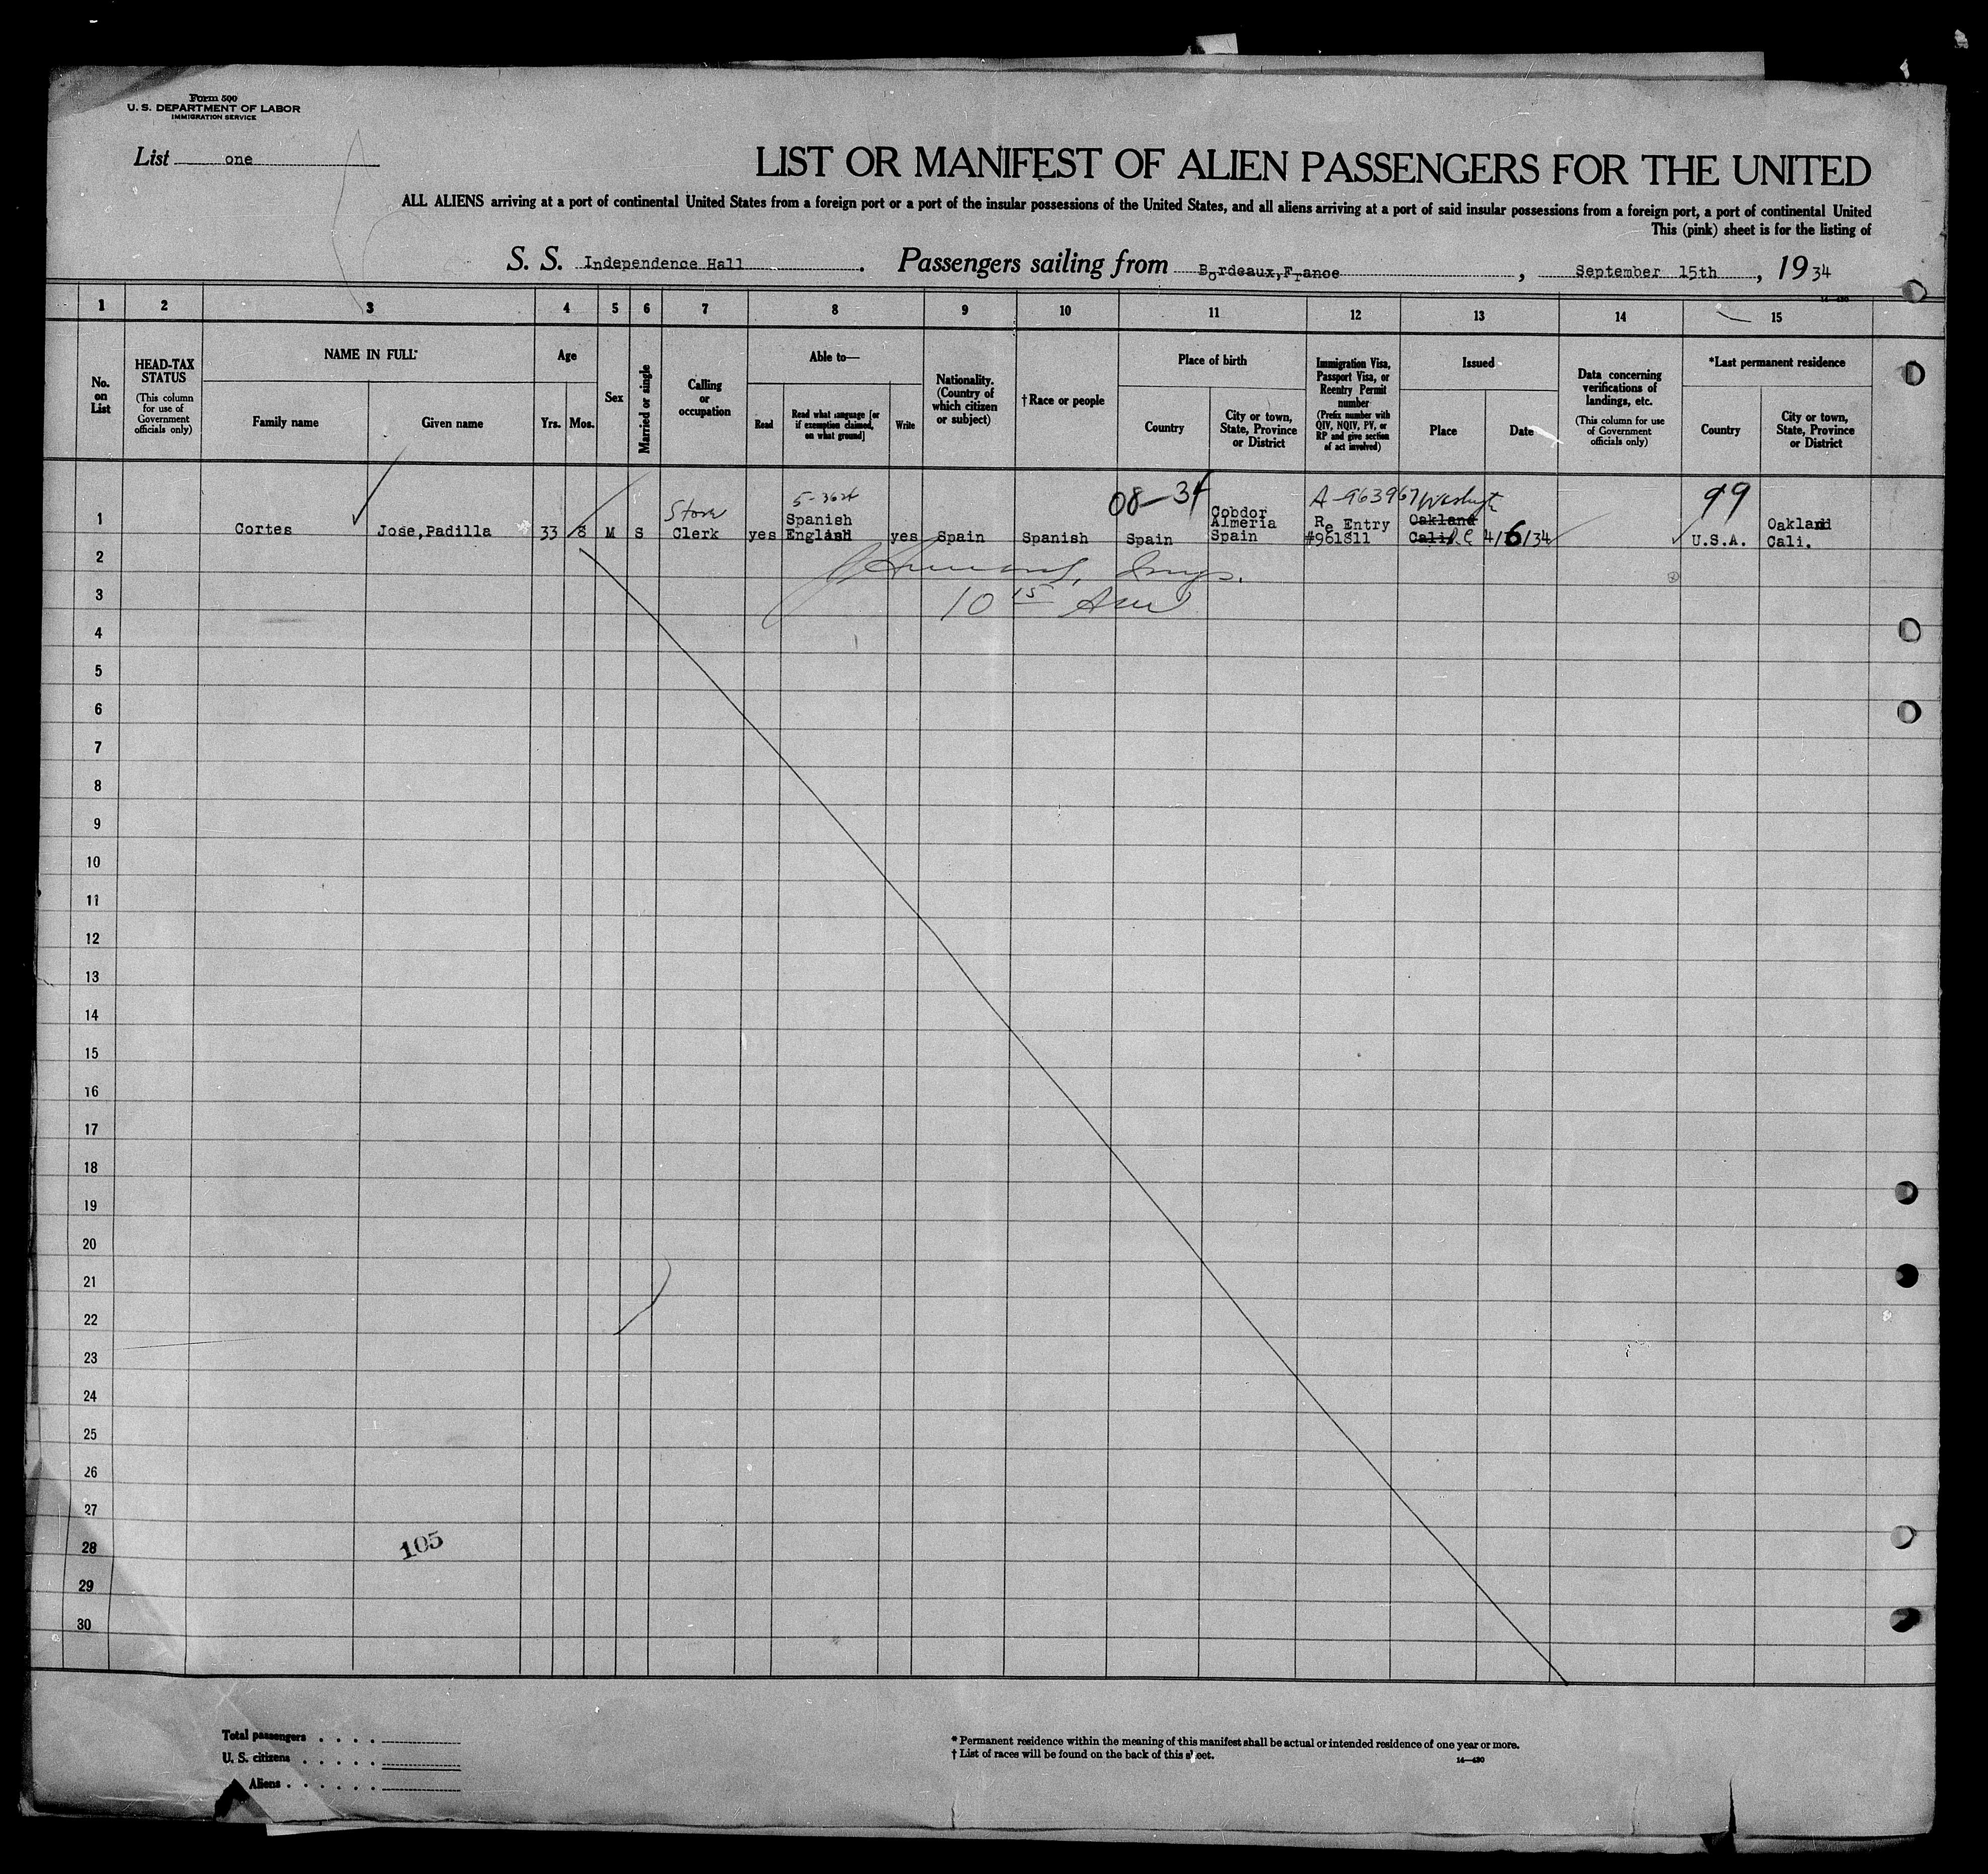 Form 500
U. S. DEPARTMENT OF LABOR
IMMIGRATION SERVICE
List one
LIST OR MANIFEST OF ALIEN PASSENGERS FOR THE UNITED
ALL ALIENS arriving at a port of continental United States from a foreign port or a port of the insular possessions of the United States, and all aliens arriving at a port of said insular possessions from a foreign port, a port of continental United
This (pink) sheet is for the listing of
S. S. Independence Hall. Passengers sailing from Bordeaux,France, September 15th, 1934
14—430
1 2 3 4 5 6 7 8 9 10 11 12 13 14 15
No. on List
HEAD-TAX STATUS
(This column for use of Government officials only)
NAME IN FULL
Family name
Given name
Age
Yrs.
Mos.
Sex
Married or single
Calling or occupation
Able to—
Read
Read what language [or if exemption claimed, on what ground]
Write
Nationality. (Country of which citizen or subject)
†Race or people
Place of birth
Country
City or town, State, Province or District
Immigration Visa, Passport Visa, or Reentry Permit number
(Prefix number with QIV, NQIV, PV, or RP and give section of act involved)
Issued
Place
Date
Data concerning verifications of landings, etc.
(This column for use of Government officials only)
*Last permanent residence
Country
City or town, State, Province or District
1 Cortes Jose,Padilla 33 8 M S Store Clerk yes Spanish English yes Spain Spanish 08-34 Spain Cobdor Almeria Spain A-963967 Re Entry #961811 Oakland Cali. 4/6/34 99 U.S.A. Oakland Cali.
2
3 10 15
4
5
6
7
8
9
10
11
12
13
14
15
16
17
18
19
20
21
22
23
24
25
26
27
28 105
29
30
Total passengers . . . .
U. S. citizens . . . . .
Aliens . . . . . .
* Permanent residence within the meaning of this manifest shall be actual or intended residence of one year or more.
† List of races will be found on the back of this sheet.
14—430